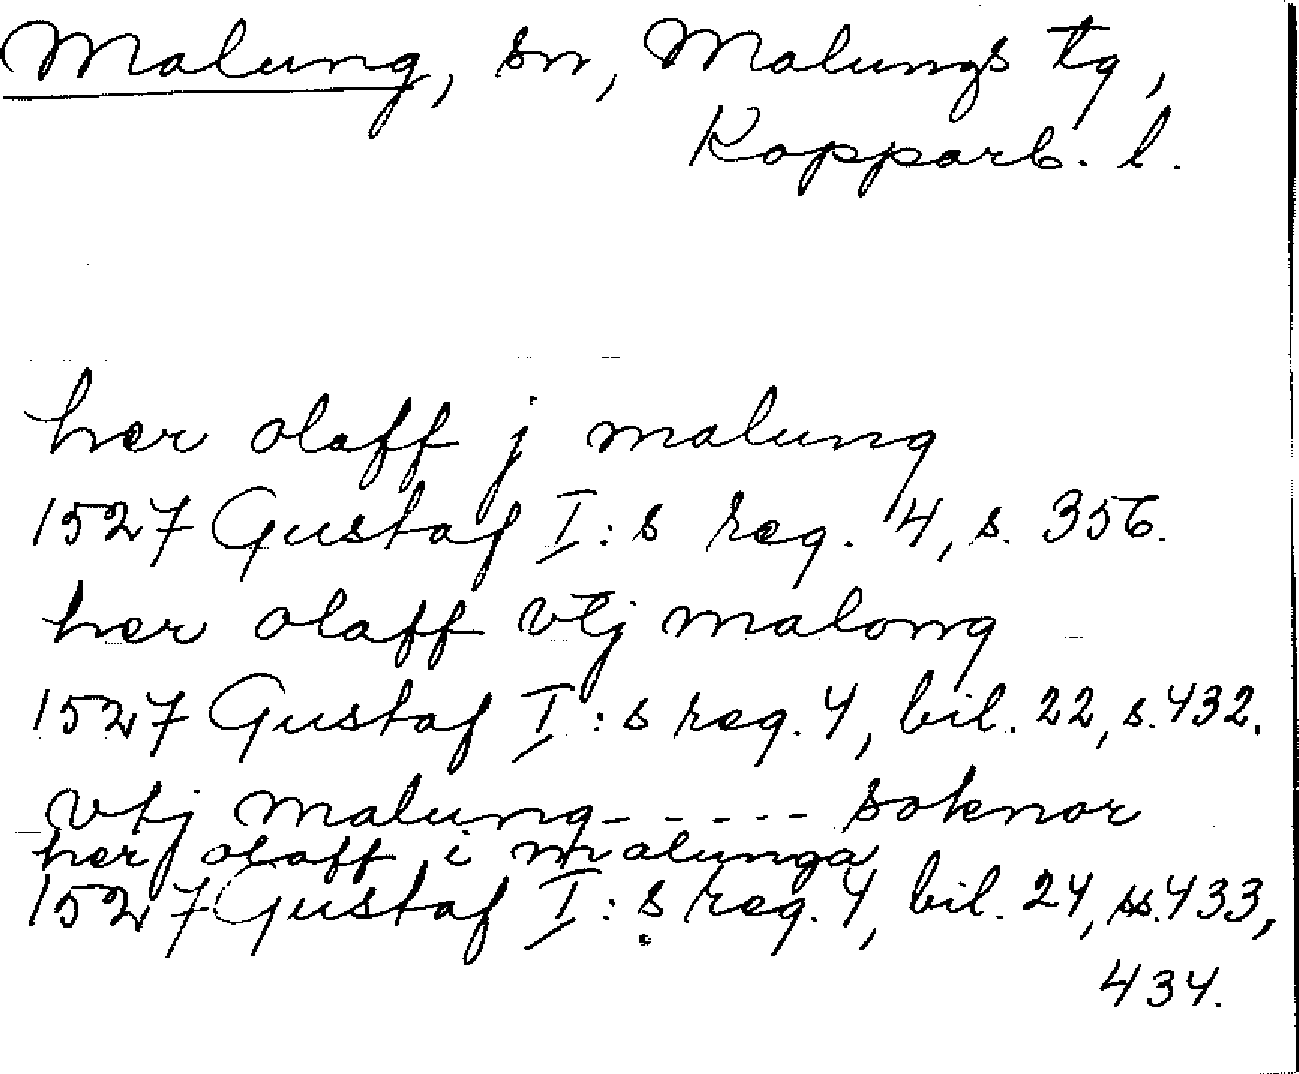 Malung, sn, Malungs tg,
Kopparb. l.
her olaff j malung
1527 Gustaf I:s reg. 4, s. 356.
her olaff vtj malong
1527 Gustaf I:s reg. 4, bil. 22, s. 432.
vtj malung - - - - - soknor
her olaff i malunga
1527 Gustaf I:s reg. 4, bil. 24, ss. 433,
434.